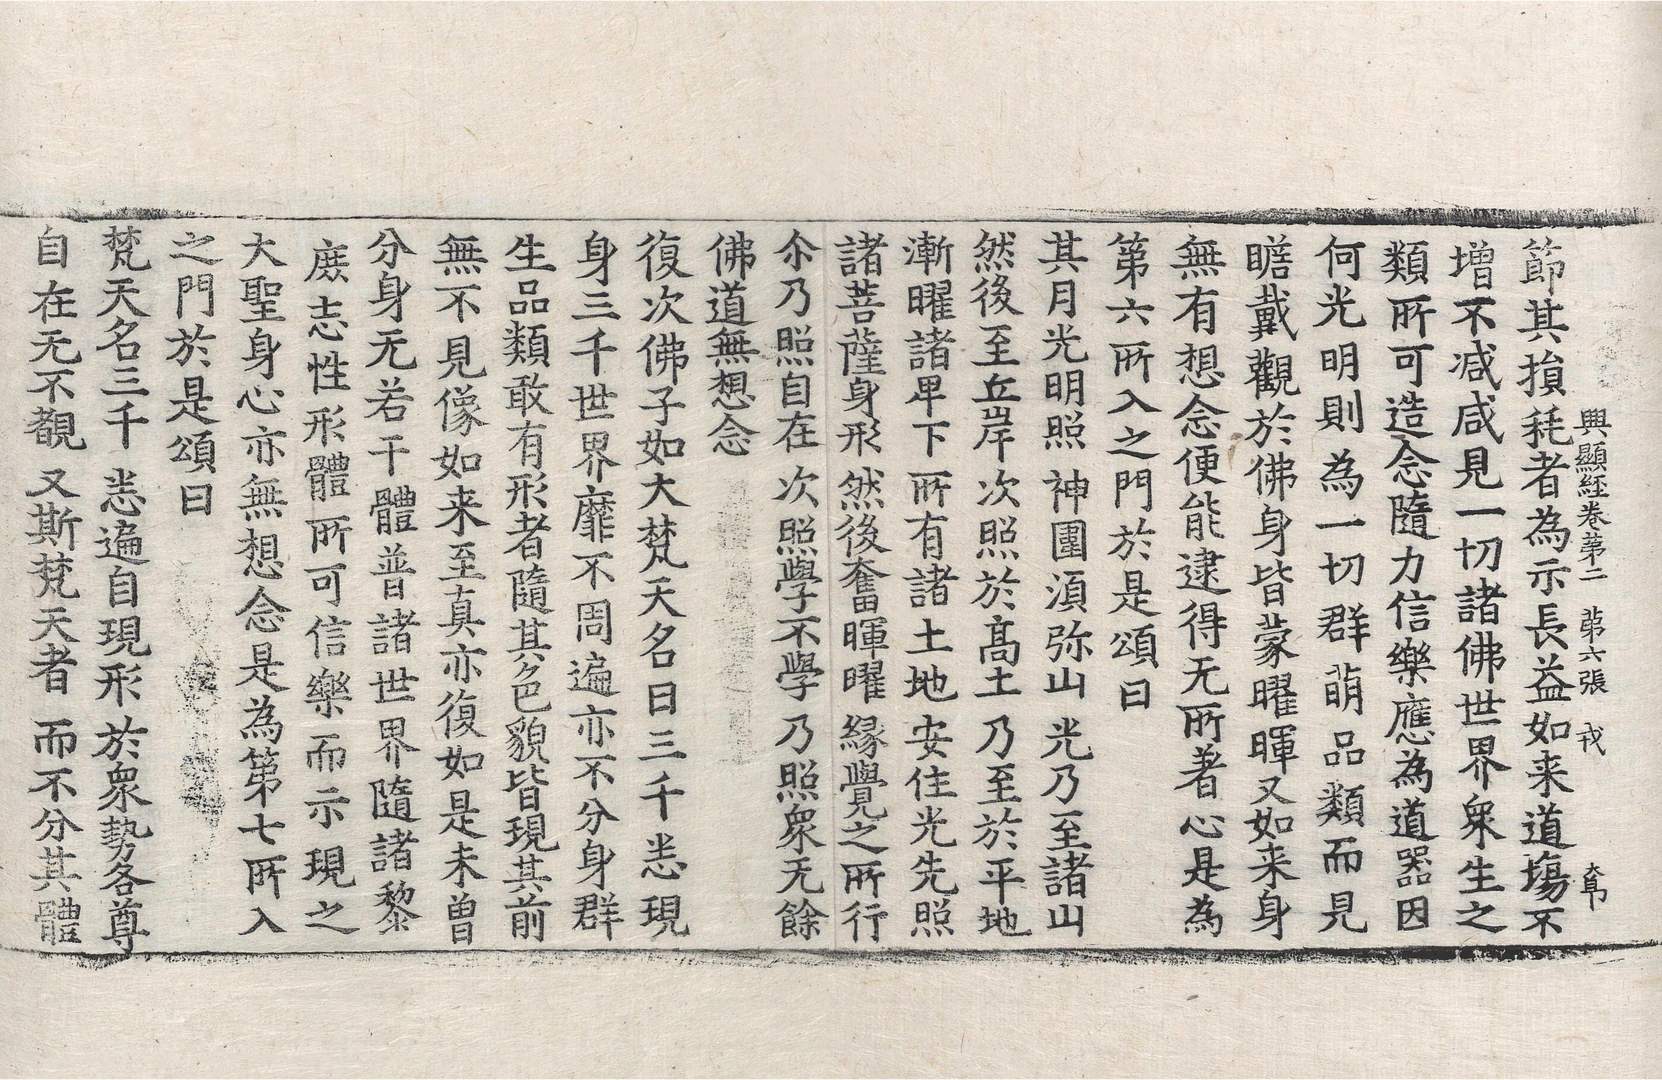 興顯経卷第二 苐六張 戎
節其損耗者為示長益如来道場不
增不减咸見一切諸佛世界衆生之
類所可造念隨力信樂應為道器因
何光明則為一切群萌品類而見
瞻戴觀於佛身皆蒙曜暉又如来身
無有想念便能逮得无所著心是為
第六所入之門於是頌曰
其月光明照 神圍須弥山 光乃至諸山
然後至丘岸 次照於高土 乃至於平地
漸曜諸卑下 所有諸土地 安住光先照
諸菩薩身形 然後奮暉曜 緣覺之所行
尒乃照自在 次照學不學 乃照衆无餘
佛道無想念
復次佛子如大梵天名曰三千悉現
身三千世界靡不周遍亦不分身群
生品類敢有形者隨其色貌皆現其前
無不見像如来至真亦復如是未曾
分身无若干體普諸世界隨諸黎
庶志性形體所可信樂而示現之
大聖身心亦無想念是為第七所入
之門於是頌曰
梵天名三千 悉遍自現形 於衆勢各尊
自在无不覩 又斯梵天者 而不分其體